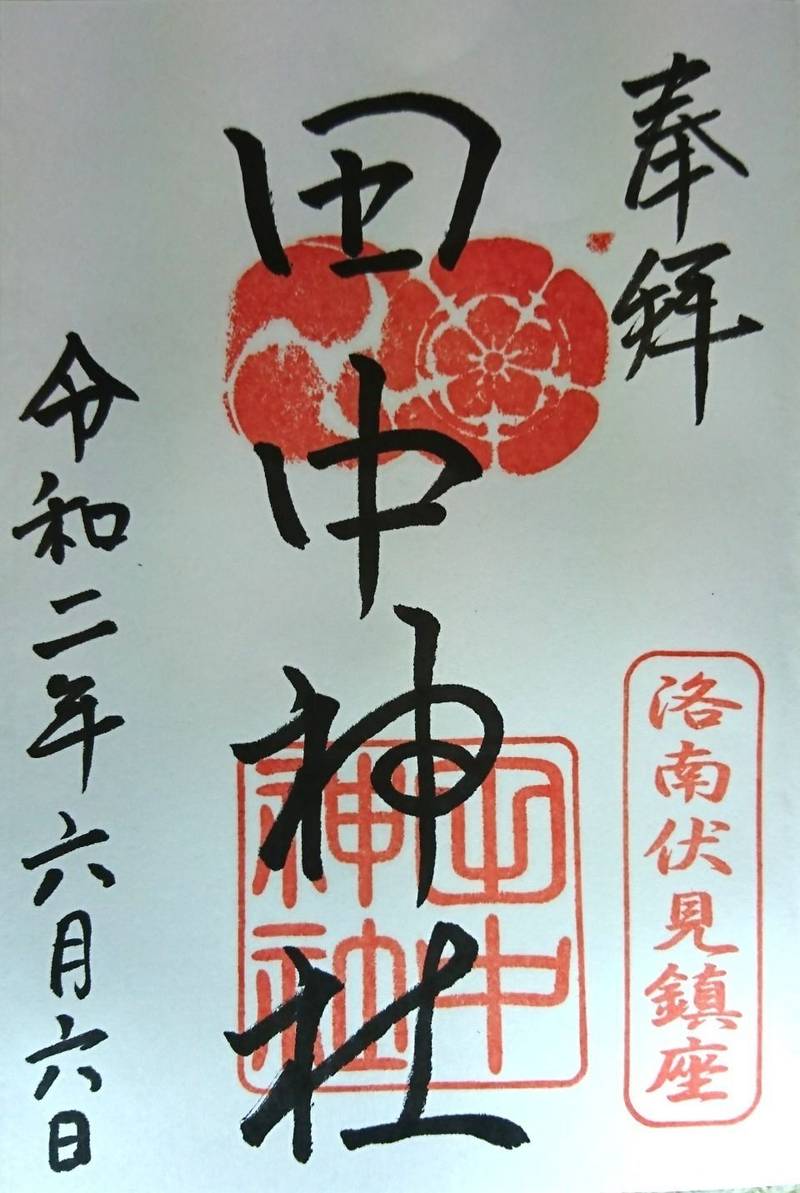 奉拝
洛南伏見鎮座
田中神社
田中神社
令和二年六月六日